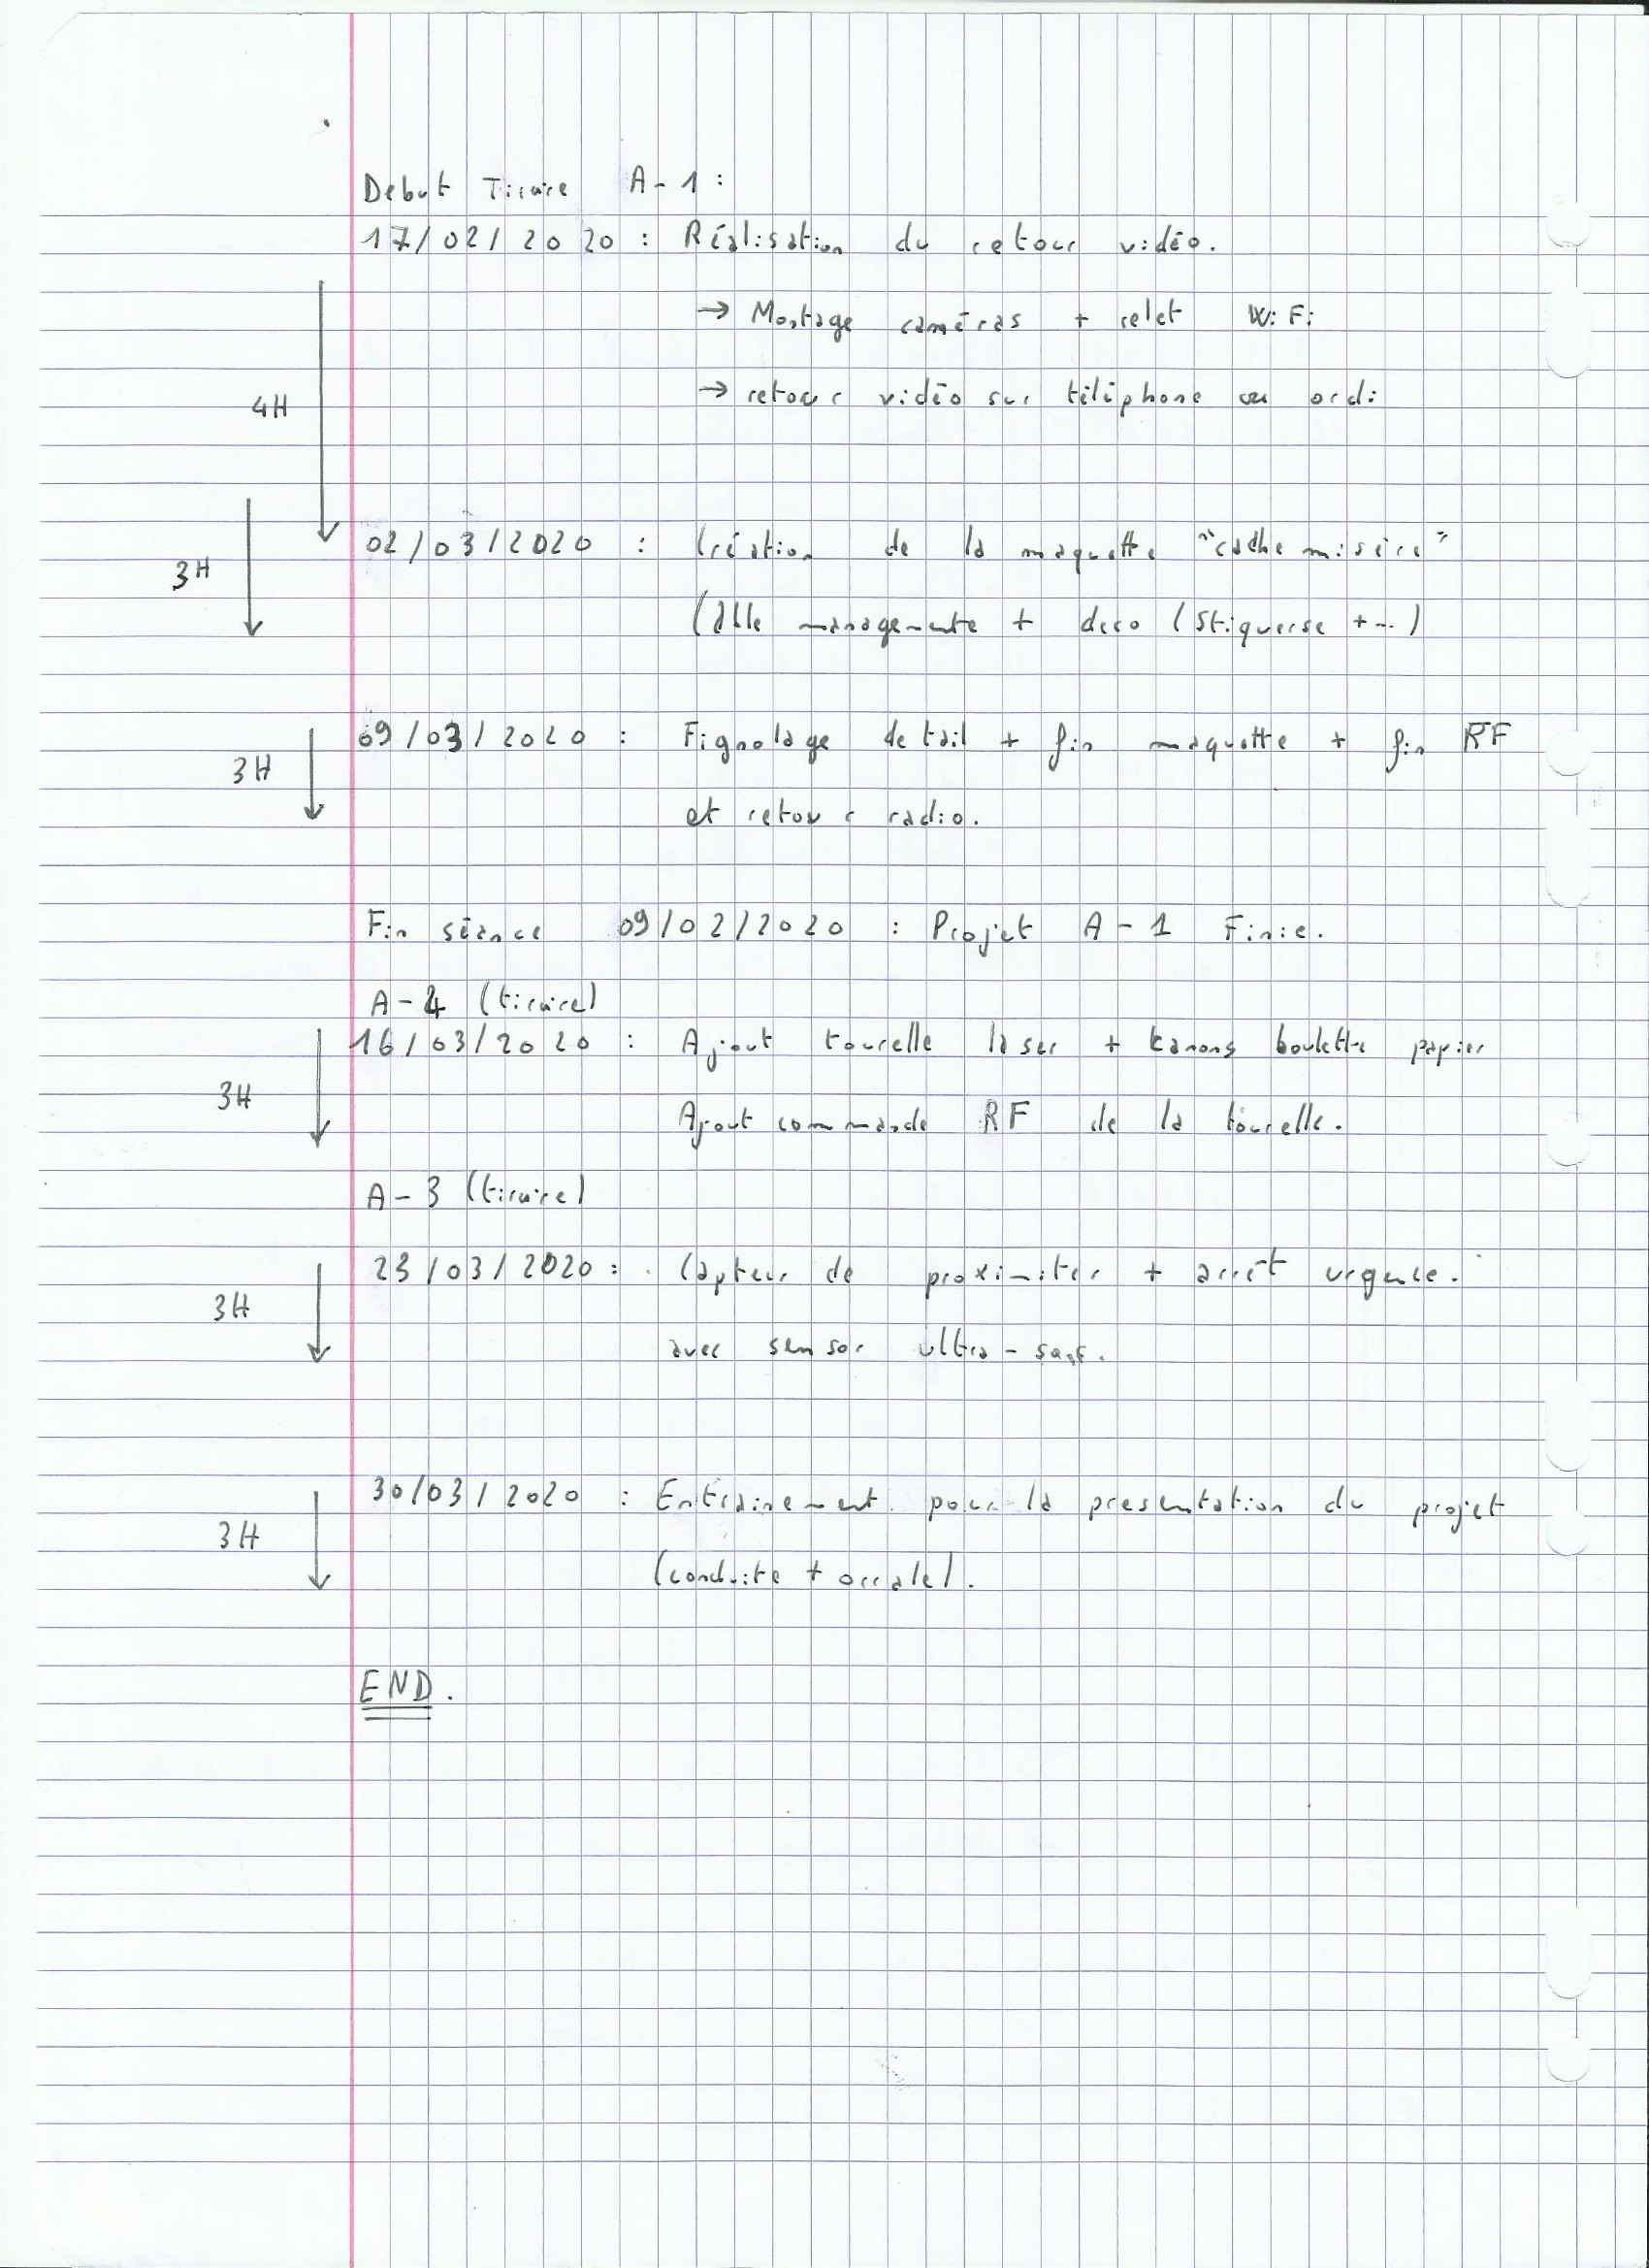 Debut Tiraire A-1 :
17/02/2020 : Réalisation du retour vidéo.
→ Montage caméras + relet WiFi
4H → retour vidéo sur téléphone ou ordi
02/03/2020 : Création de la maquette "cache misère"
3H
(âble managemente + deco (Stiquerse + ...)
09/03/2020 : Fignolage detail + fin maquette + fin RF
3H
et retour radio.
Fin séance 09/02/2020 : Projet A-1 Finie.
A-4 (tiraire)
16/03/2020 : Ajout tourelle laser + kanons boulette papier
3H Ajout commande RF de la tourelle.
A-3 (tiraire)
23/03/2020 : Capteur de proximiter + arrêt urgence.
3H
avec sensor ultra-son.
30/03/2020 : Entrainement pour la presentation du projet
3H
(conduite + orrale).
END.